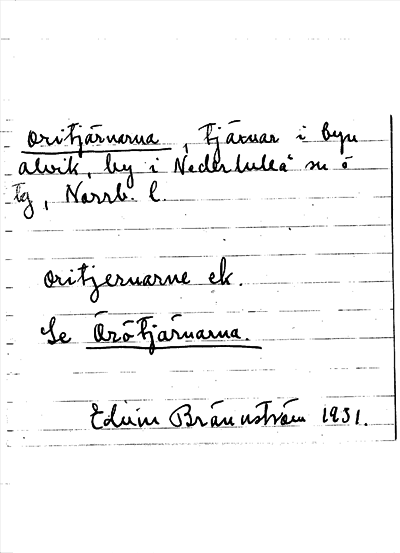 oritjärnarna, tjärnar i byn
alvik, by i Nederluleå sn ö
tg, Norrb. l.
oritjernarne ek.
Se Örötjärnarna.
Edvin Brännström 1931.